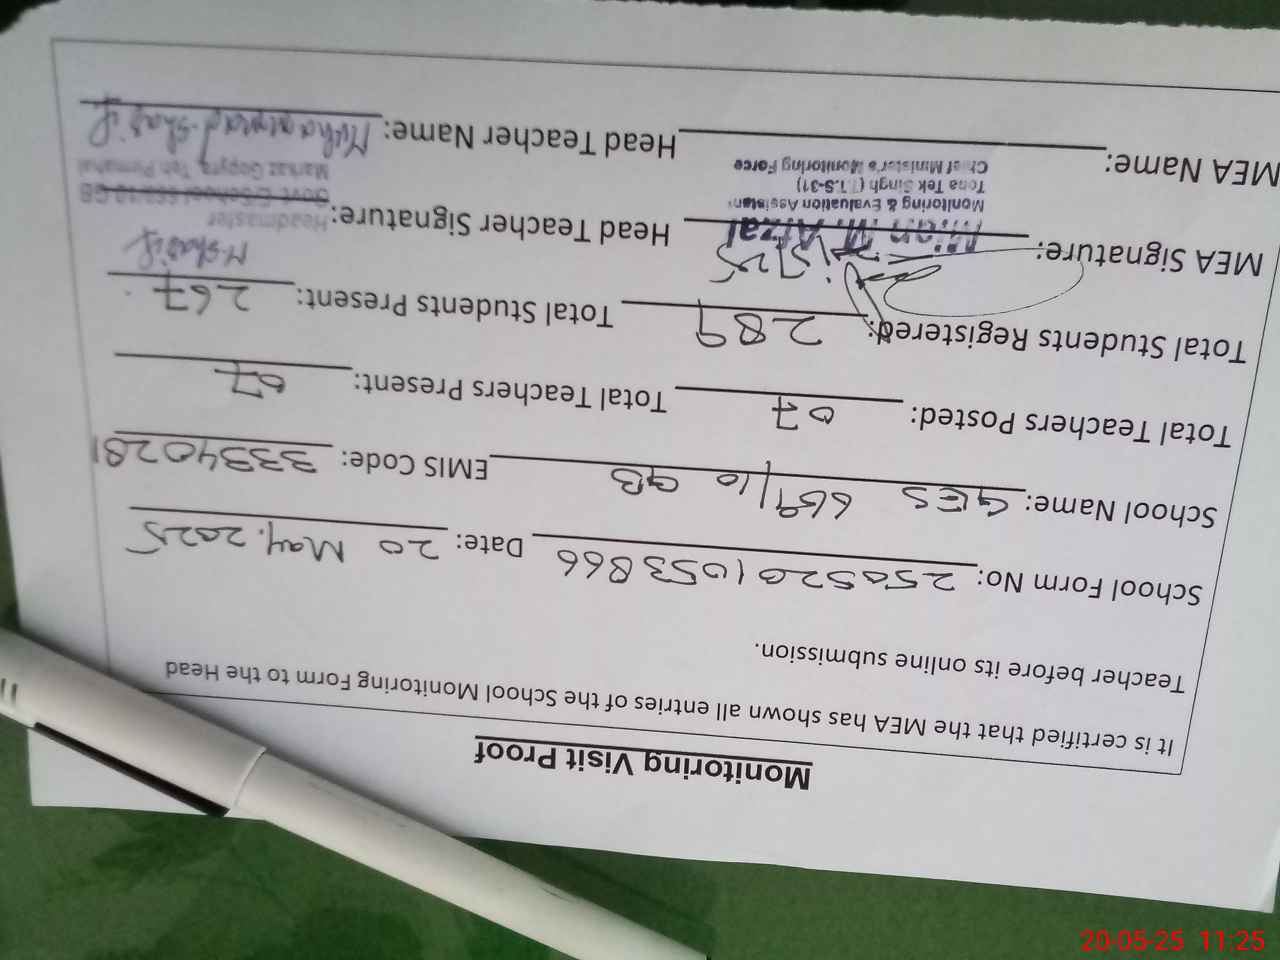 Monitoring Visit Proof
It is certified that the MEA has shown all entries of the School Monitoring Form to the Head
Teacher before its online submission.
School Form No: 2505201053866 Date: 20 May. 2025
School Name: GES 669/10 GB EMIS Code: 33340281
Total Teachers Posted: 07 Total Teachers Present: 07
Total Students Registered: 289 Total Students Present: 267
MEA Signature: Head Teacher Signature: M. Shafif
Mian M Afzal
Monitoring & Evaluation Assistant
Toba Tek Singh (T.T.S-31)
Chief Minister's Monitoring Force
Headmaster
Govt. E/School 669/10 GB
Markaz Gopyra, Teh Pirmahal
MEA Name: Head Teacher Name: Muhammad Shafif
20-05-25 11:25